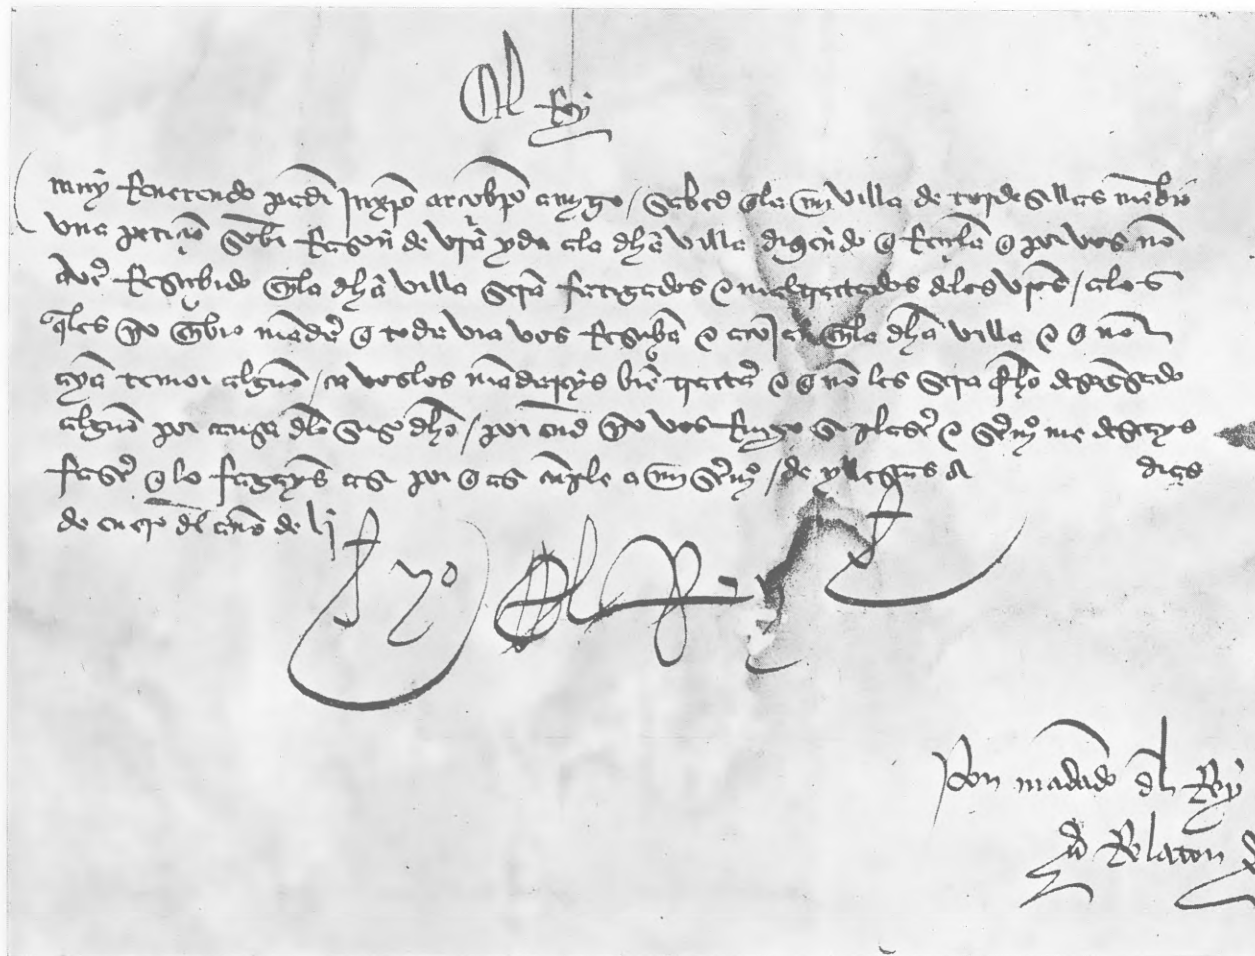 El Rey
muy Reuerendo padre in xpo arçobpo amygo / Sabed qla mi villa de tordesillas me enbio
una petiçio sobre Rason de vra yda a la dha villa diziendo q Reçela q por vos no
aver Resçebido en la dha villa sera fatigados e mal tractados de los vros / a los
qles yo enbio mandar q toda via vos Resçiba e acoja en la dha villa e q no
aya temor alguno / ca vos los madareys bie tractar e q no les sera fho desaguisado
alguno por causa dlo suso dho / por ende yo vos Ruego si plaser e serviçio me deseays
faser q lo fagays asi por q asi cunple a mi serviçio / de yllescas a dias
de enero dl año de lj
yo el Rey
Por madado dl Rey
Relator